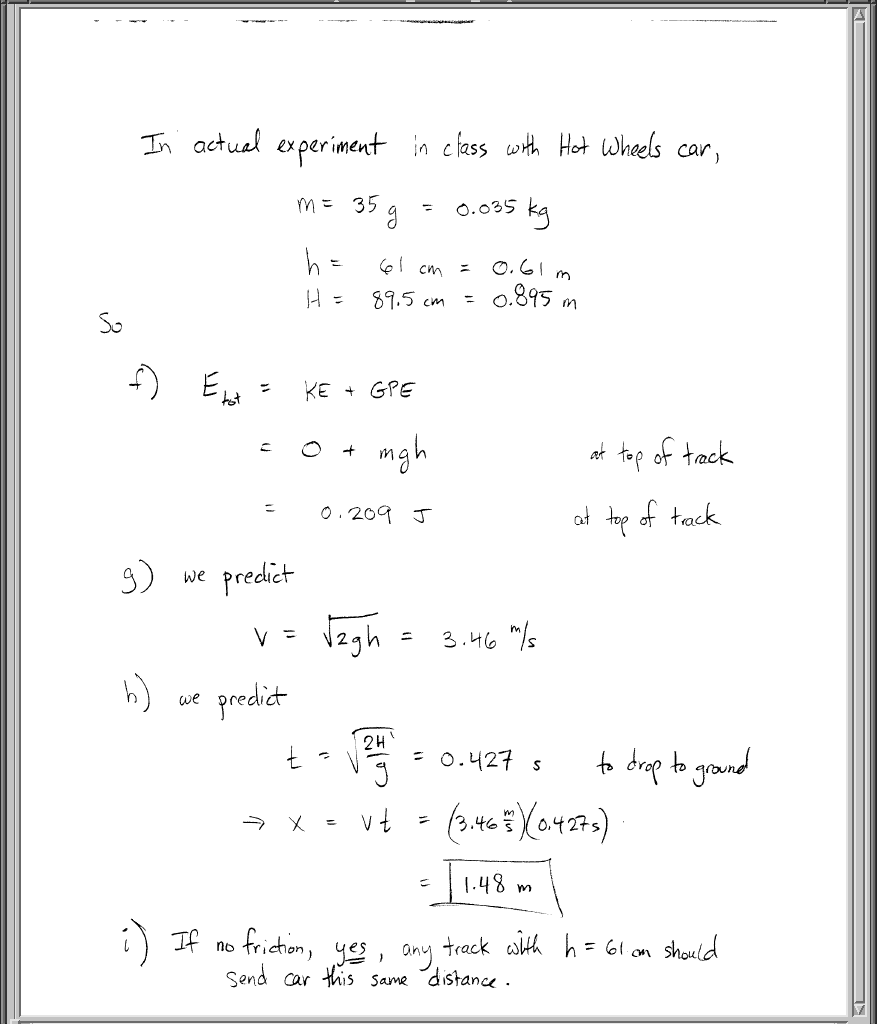 In actual experiment in class with Hot Wheels car,
m = 35 g = 0.035 kg
h = 61 cm = 0.61 m
H = 89.5 cm = 0.895 m
So
f) E_tot = KE + GPE
= 0 + mgh at top of track
= 0.209 J at top of track
g) we predict
v = √2gh = 3.46 m/s
h) we predict
t = √(2H/g) = 0.427 s to drop to ground
→ x = vt = (3.46 m/s)(0.427s)
= 1.48 m
i) If no friction, yes, any track with h = 61 cm should
send car this same distance.